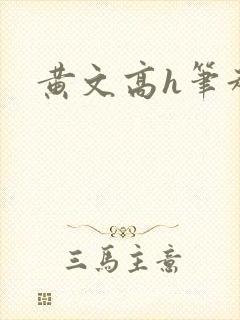 黄文高h筆
三馬主意